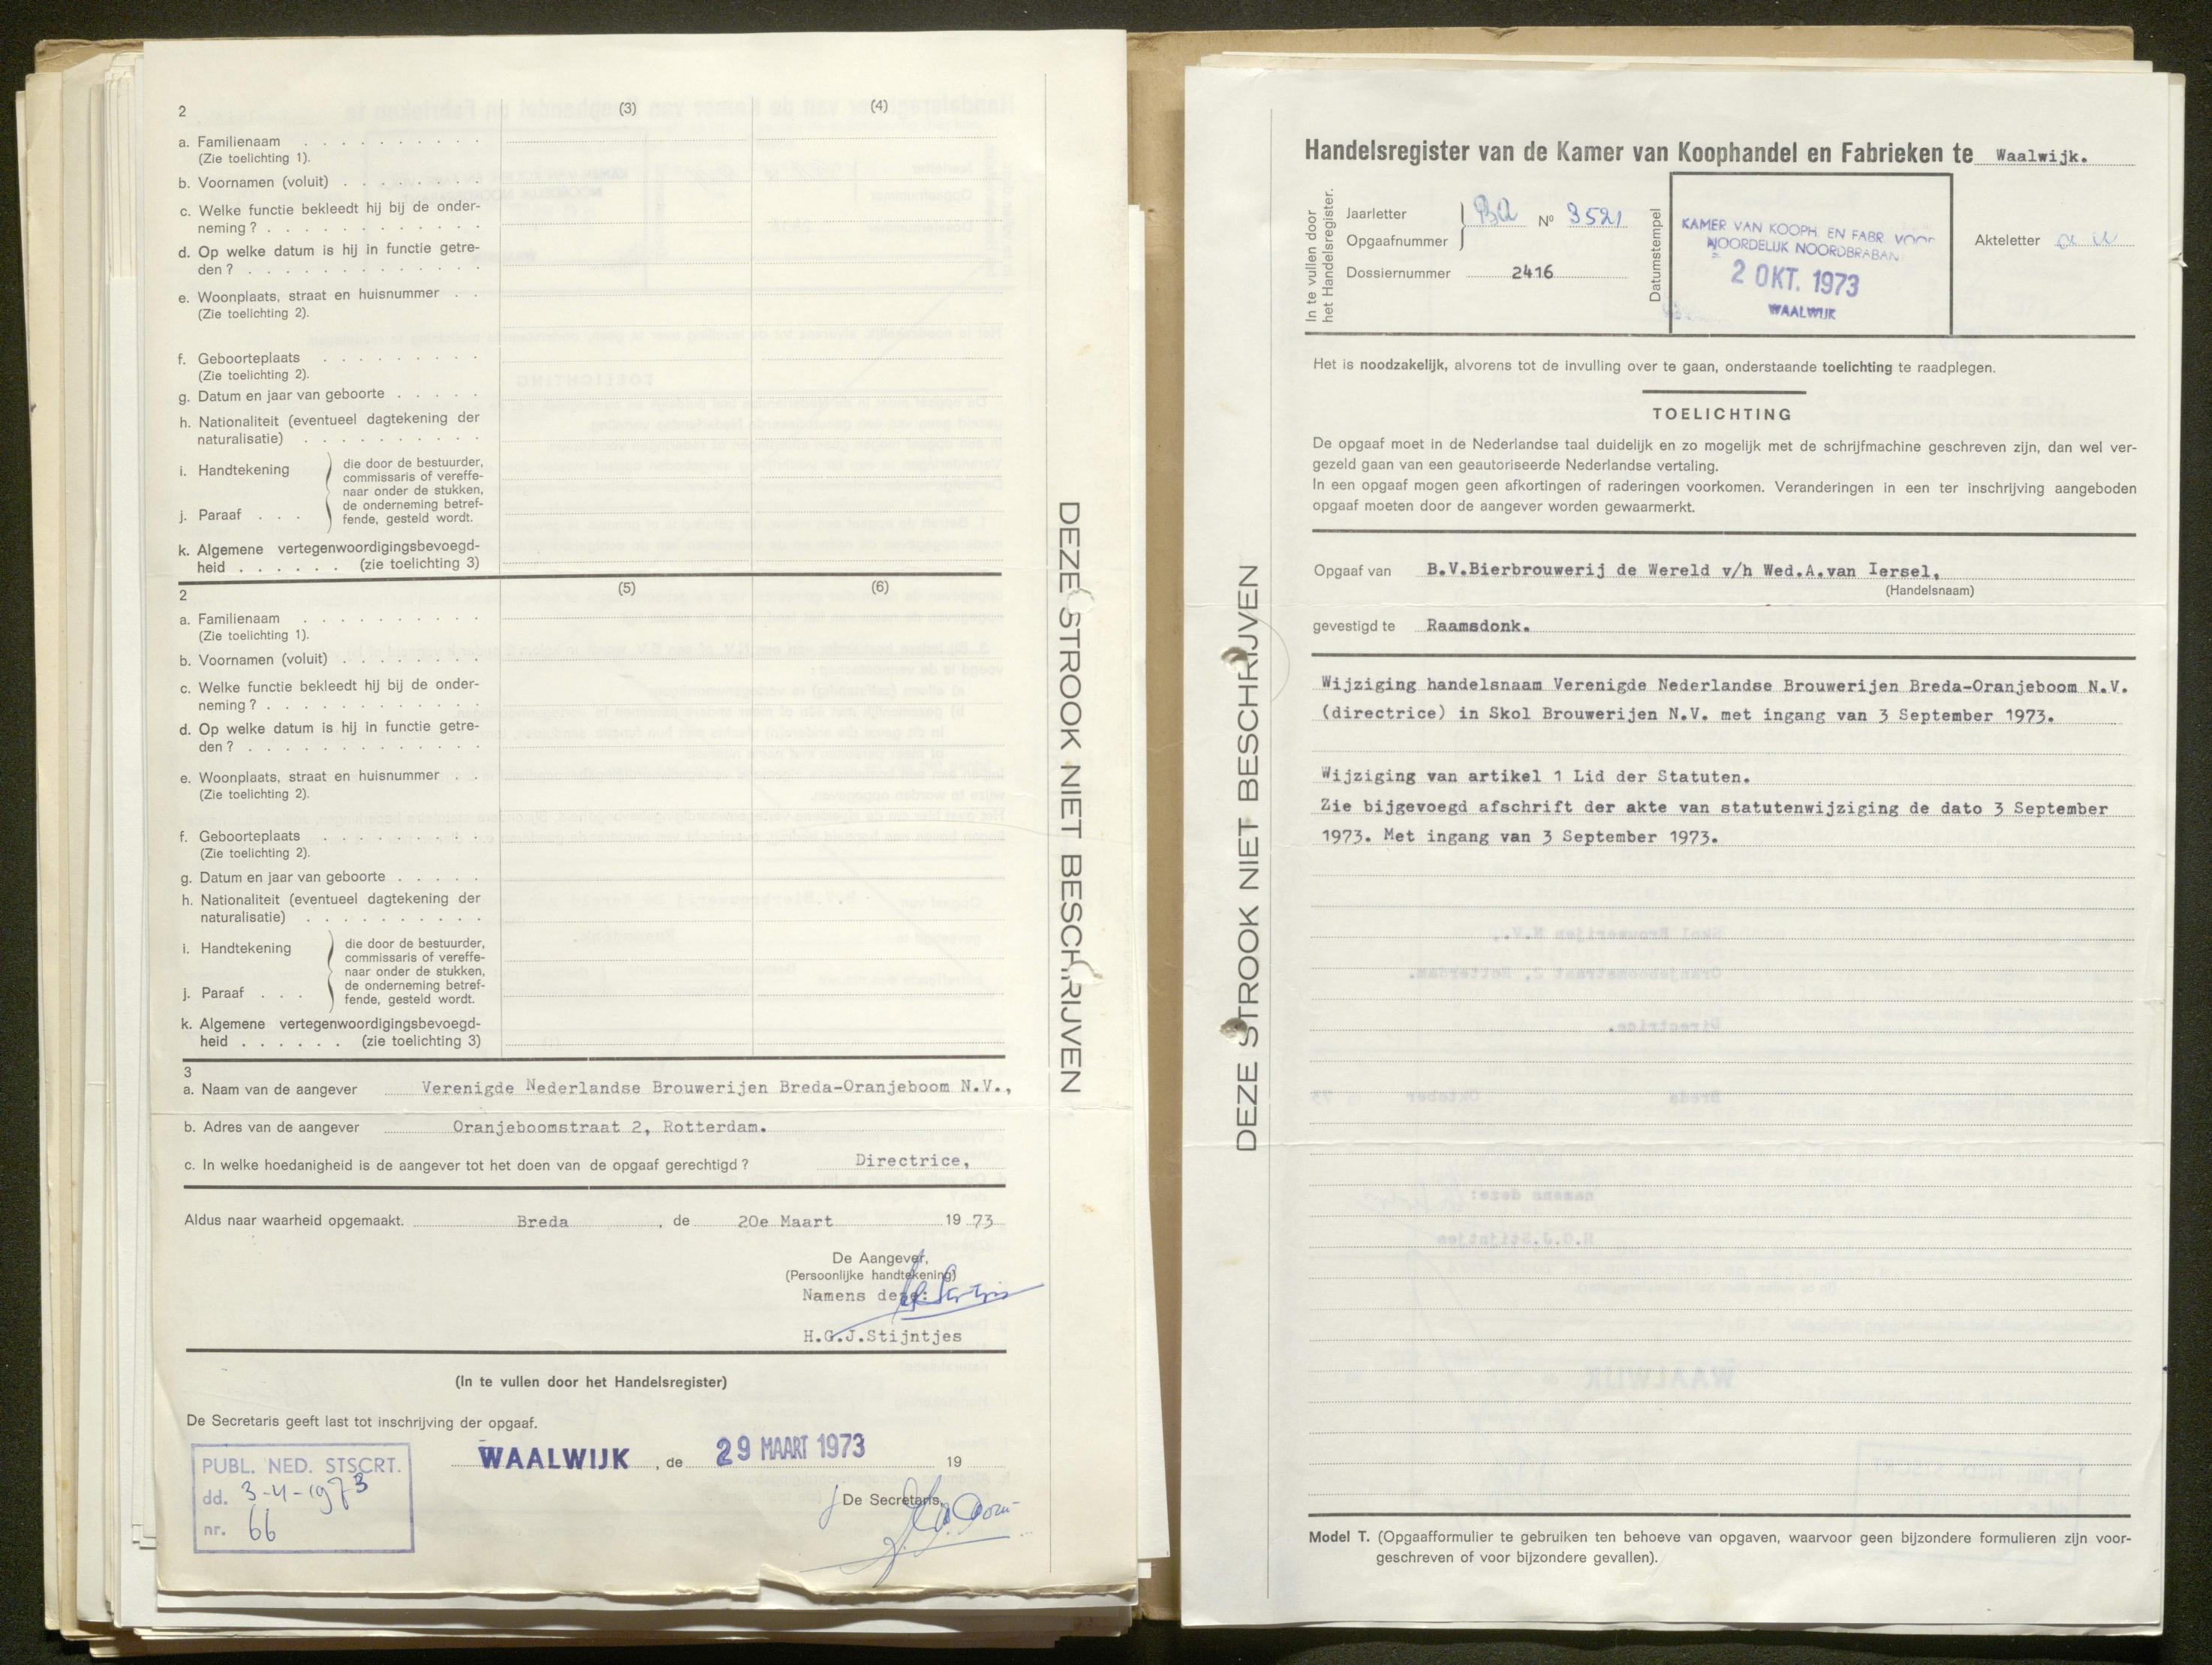 2
(3)
(4)
a. Familienaam
(Zie toelichting 1).
b. Voornamen (voluit)
c. Welke functie bekleedt hij bij de onder-
neming ?
d. Op welke datum is hij in functie getre-
den ?
e. Woonplaats, straat en huisnummer
(Zie toelichting 2).
f. Geboorteplaats
(Zie toelichting 2).
g. Datum en jaar van geboorte
h. Nationaliteit (eventueel dagtekening der
naturalisatie)
i. Handtekening
j. Paraaf
die door de bestuurder,
commissaris of vereffe-
naar onder de stukken,
de onderneming betref-
fende, gesteld wordt.
k. Algemene vertegenwoordigingsbevoegd-
heid (zie toelichting 3)
2
(5)
(6)
a. Familienaam
(Zie toelichting 1).
b. Voornamen (voluit)
c. Welke functie bekleedt hij bij de onder-
neming ?
d. Op welke datum is hij in functie getre-
den ?
e. Woonplaats, straat en huisnummer
(Zie toelichting 2).
f. Geboorteplaats
(Zie toelichting 2).
g. Datum en jaar van geboorte
h. Nationaliteit (eventueel dagtekening der
naturalisatie)
i. Handtekening
j. Paraaf
die door de bestuurder,
commissaris of vereffe-
naar onder de stukken,
de onderneming betref-
fende, gesteld wordt.
k. Algemene vertegenwoordigingsbevoegd-
heid (zie toelichting 3)
3
a. Naam van de aangever Verenigde Nederlandse Brouwerijen Breda-Oranjeboom N.V.,
b. Adres van de aangever Oranjeboomstraat 2, Rotterdam.
c. In welke hoedanigheid is de aangever tot het doen van de opgaaf gerechtigd ? Directrice,
Aldus naar waarheid opgemaakt. Breda, de 20e Maart 19 73
De Aangever,
(Persoonlijke handtekening)
Namens deze:
H.G.J.Stijntjes
(In te vullen door het Handelsregister)
De Secretaris geeft last tot inschrijving der opgaaf.
WAALWIJK, de 29 MAART 1973 19
PUBL. NED. STSCRT.
dd. 3-4-1973
nr. 66
De Secretaris,
DEZE STROOK NIET BESCHRIJVEN
DEZE STROOK NIET BESCHRIJVEN
Handelsregister van de Kamer van Koophandel en Fabrieken te Waalwijk.
In te vullen door
het Handelsregister.
Jaarletter
Opgaafnummer
No 3521
Dossiernummer 2416
Datumstempel
KAMER VAN KOOPH. EN FABR. VOOR
NOORDELIJK NOORDBRABAN
2 OKT. 1973
WAALWIJK
Akteletter
Het is noodzakelijk, alvorens tot de invulling over te gaan, onderstaande toelichting te raadplegen.
TOELICHTING
De opgaaf moet in de Nederlandse taal duidelijk en zo mogelijk met de schrijfmachine geschreven zijn, dan wel ver-
gezeld gaan van een geautoriseerde Nederlandse vertaling.
In een opgaaf mogen geen afkortingen of raderingen voorkomen. Veranderingen in een ter inschrijving aangeboden
opgaaf moeten door de aangever worden gewaarmerkt.
Opgaaf van B.V.Bierbrouwerij de Wereld v/h Wed.A.van Iersel,
(Handelsnaam)
gevestigd te Raamsdonk.
Wijziging handelsnaam Verenigde Nederlandse Brouwerijen Breda-Oranjeboom N.V.
(directrice) in Skol Brouwerijen N.V. met ingang van 3 September 1973.
Wijziging van artikel 1 Lid der Statuten.
Zie bijgevoegd afschrift der akte van statutenwijziging de dato 3 September
1973. Met ingang van 3 September 1973.
Model T. (Opgaafformulier te gebruiken ten behoeve van opgaven, waarvoor geen bijzondere formulieren zijn voor-
geschreven of voor bijzondere gevallen).